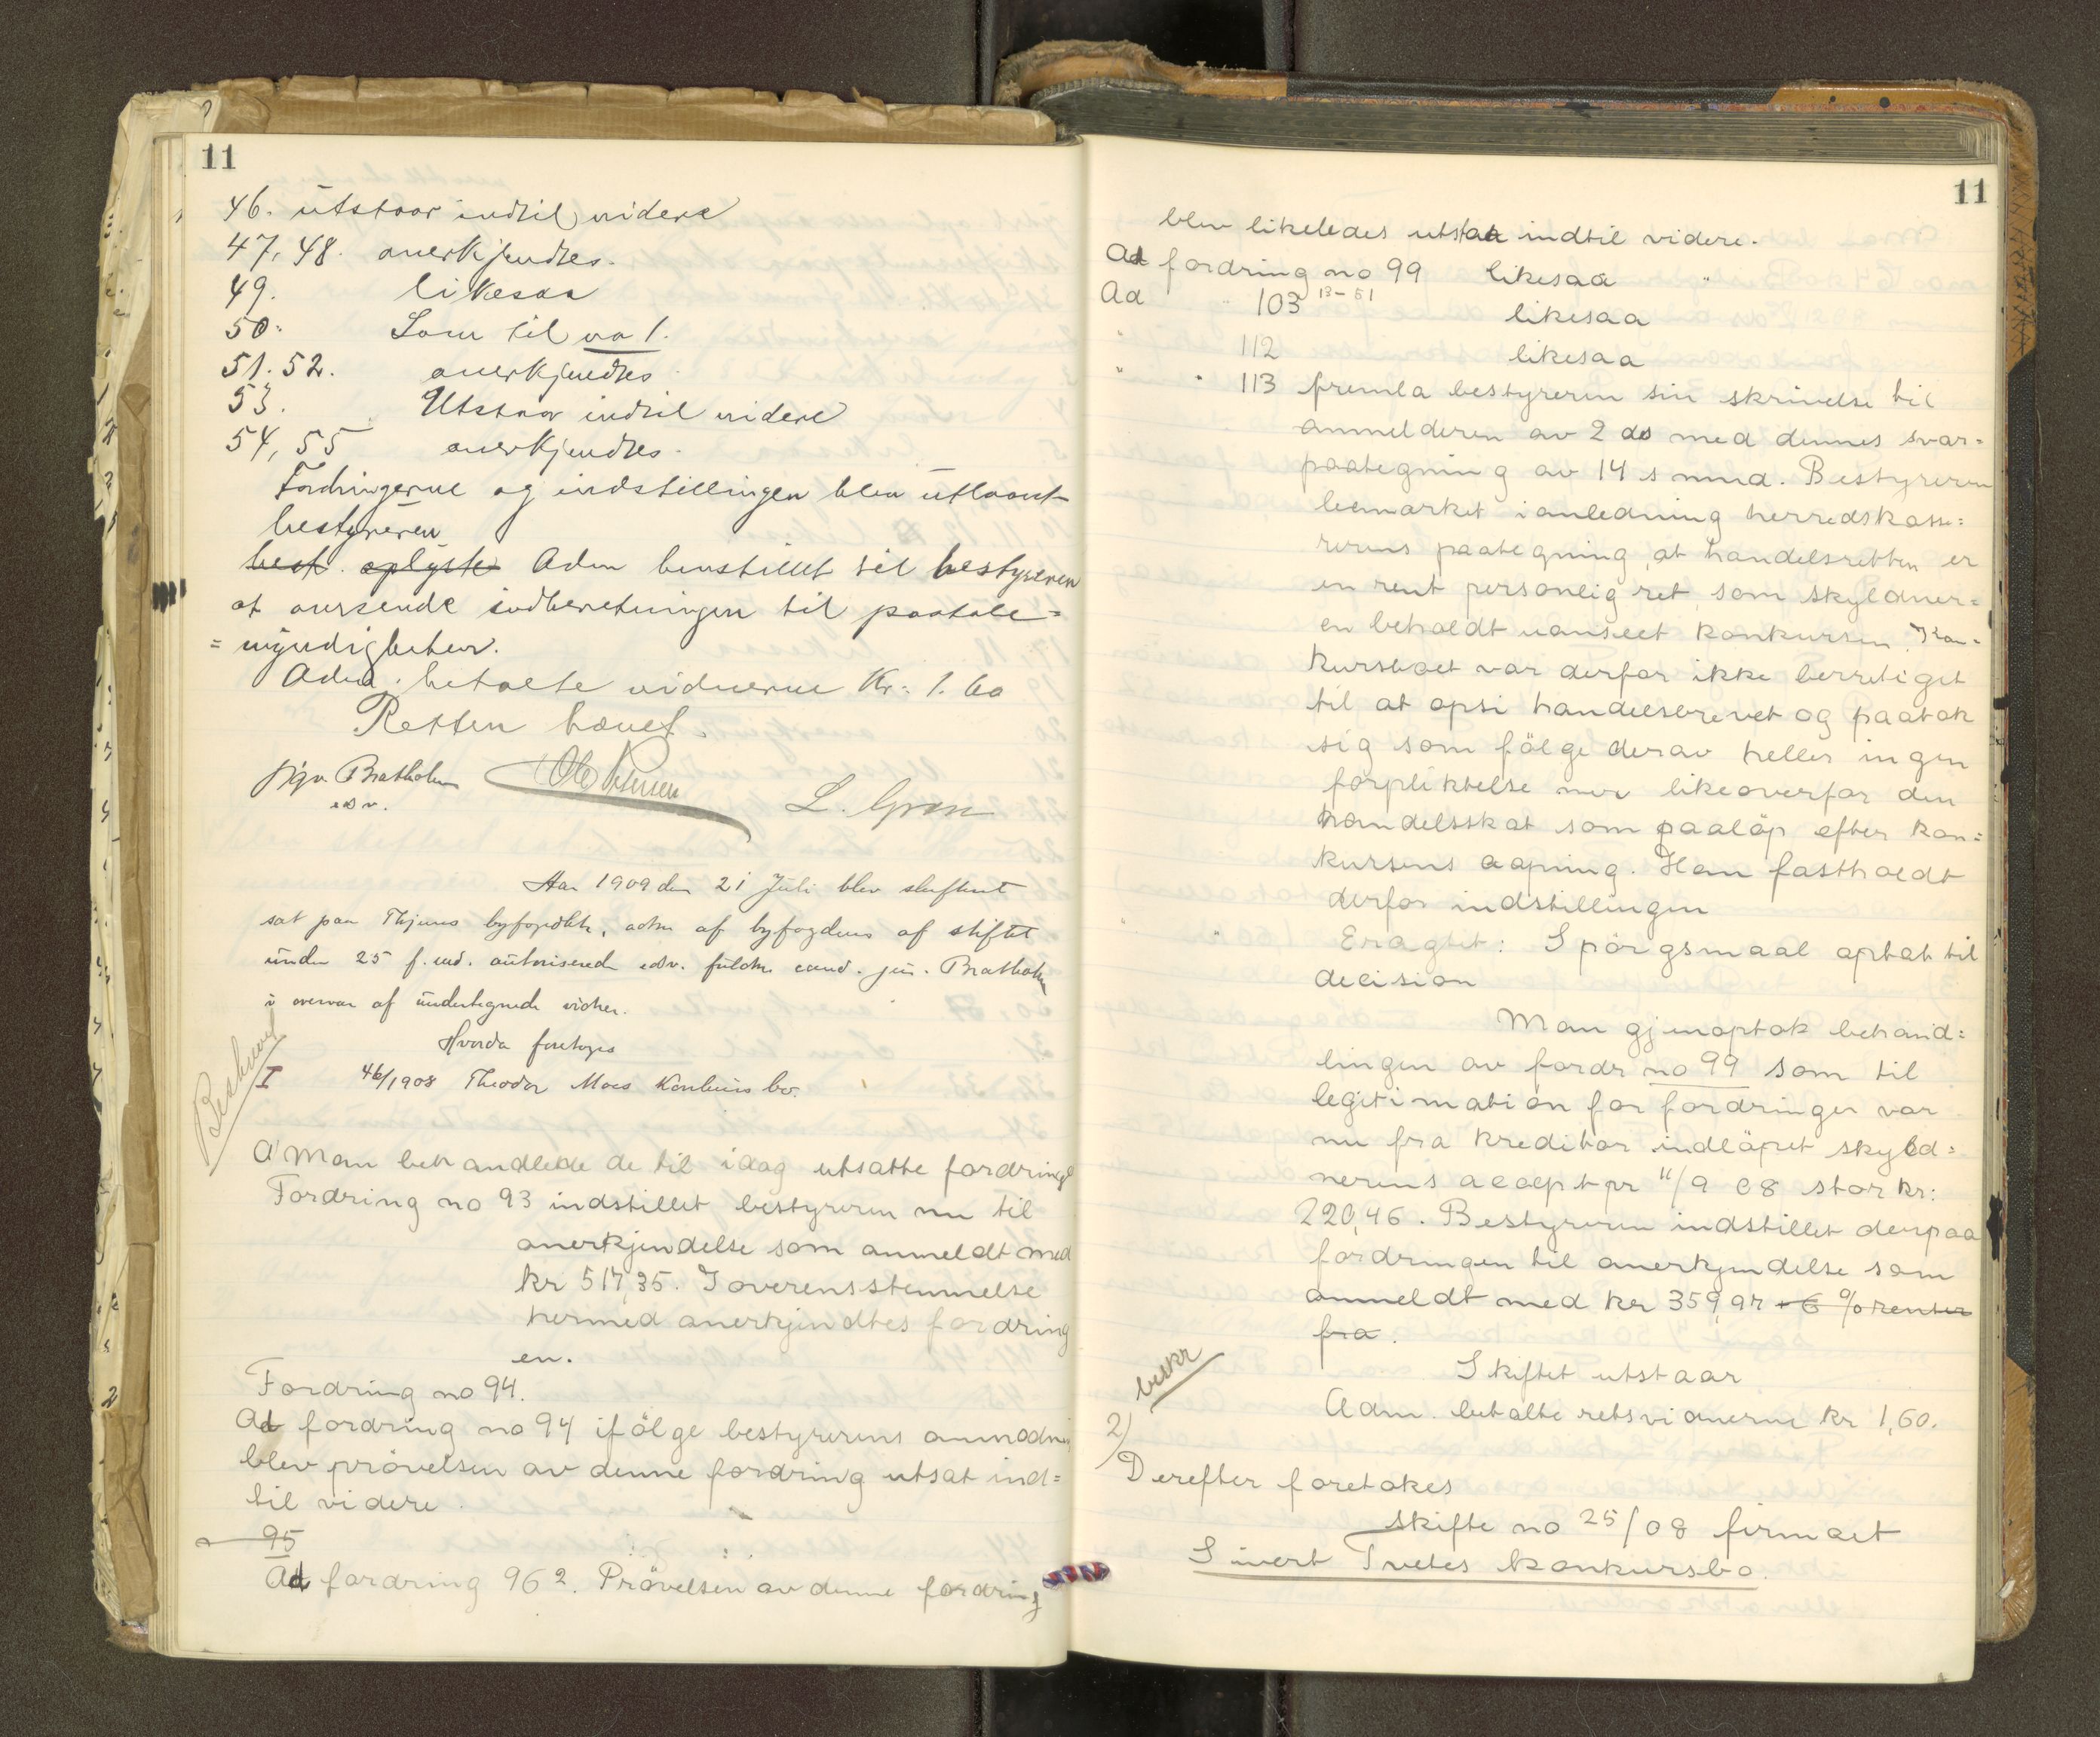 11
46. utstaar indtil videre
47, 48. anerkjendtes.
49. likesaa
50. Som til no 1.
51. 52. anerkjendtes
53. Utstaar indtil videre
54, 55 anerkjendtes.
Fordringerne og indstillingen blev utlaant
bestyreren
best. oplyste Adm henstillet til bestyreren
at oversende indberetningen til paatale=
=myndigheten.
Adm. betalte vidnerne Kr: 1.60
Retten hævet.
Sigv. Bratholm
edsv.
L. Gran
Aar 1909 den 21 Juli blev skifteret
sat paa byfogdkt, adm af byfogdens af skiftet
under 25 f. md. autoriserede edsv. fuldm. cand. jur. Bratholm
i overvær af undertegnede vidner.
Hvorda foretoges
I 46/1908 Theodor Moes Konkurs bo.
A Man behandlede de til idag utsatte fordring
Fordring no 93 indstillet bestyreren nu til
anerkjendelse som anmeldt med
kr 517,35. I overensstemmelse
hermed anerkjendtes fordring
en.
Fordring no 94.
Ad fordring no 94 ifölge bestyrerens anmodn
blev prövelsen av denne fordring utsat ind=
til videre.
95
Ad fordring 96 2. Prövelsen av denne fordring
11
blev likeledes utstaa indtil videre.
Ad fordring no 99 likesaa "
Ad " 103 13-51 likesaa
" 112 likesaa
" " 113 fremla bestyreren sin skrivelse til
anmelderen av 2 ds med dennes svar=
paategning av 14 s mnd. Bestyreren
bemærket i anledning herredskasse=
rerens paategning, at handelsretten er
en rent personlig ret som skyldner=
en beholdt uanseet konkursen. Kon=
kursboet var derfor ikke berretiget
til at opsi handelsbrevet og paatok
sig som fölge derav heller ingen
forpliktelse mer likeoverfor den
handelsskat som paalöp efter kon=
kursens aapning. Han fastholdt
derfor indstillingen
" " Eragtet: Spörgsmaal optat til
decision
Man gjenoptok behand=
lingen av fordr no 99 som til
legitimation for fordringen var
nu fra kreditor indlöpet skyld=
nerens accept pr 11/9 08 stor kr:
220,46. Bestyreren indstillet derpaa
fordringen til anerkjendelse som
anmeldt med kr 359,97 + 6 % renter
fra.
Skiftet utstaar
beskr
Adm. betalte retsvidnerne kr 1,60.
2)
Derefter foretokes
skifte no 25/08 firmaet
Sivert Tvetes konkursbo.